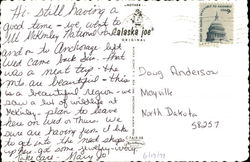 Hi - Still having a
good time - we went to
Mt McKinley National
and on to Anchorage left
Wed came back Sun. that
was a neat trip - the
mts are beautiful - this
is a beautiful region - we
saw a lot of wildlife at
McKinley - plan to leave
here on Wed or Thurs. We
sure are having fun. I like
to get into the
Take care - Mary Jo
ANOTHER
alaska joe
ORIGINAL
Doug Anderson
Mayville
North Dakota
58257